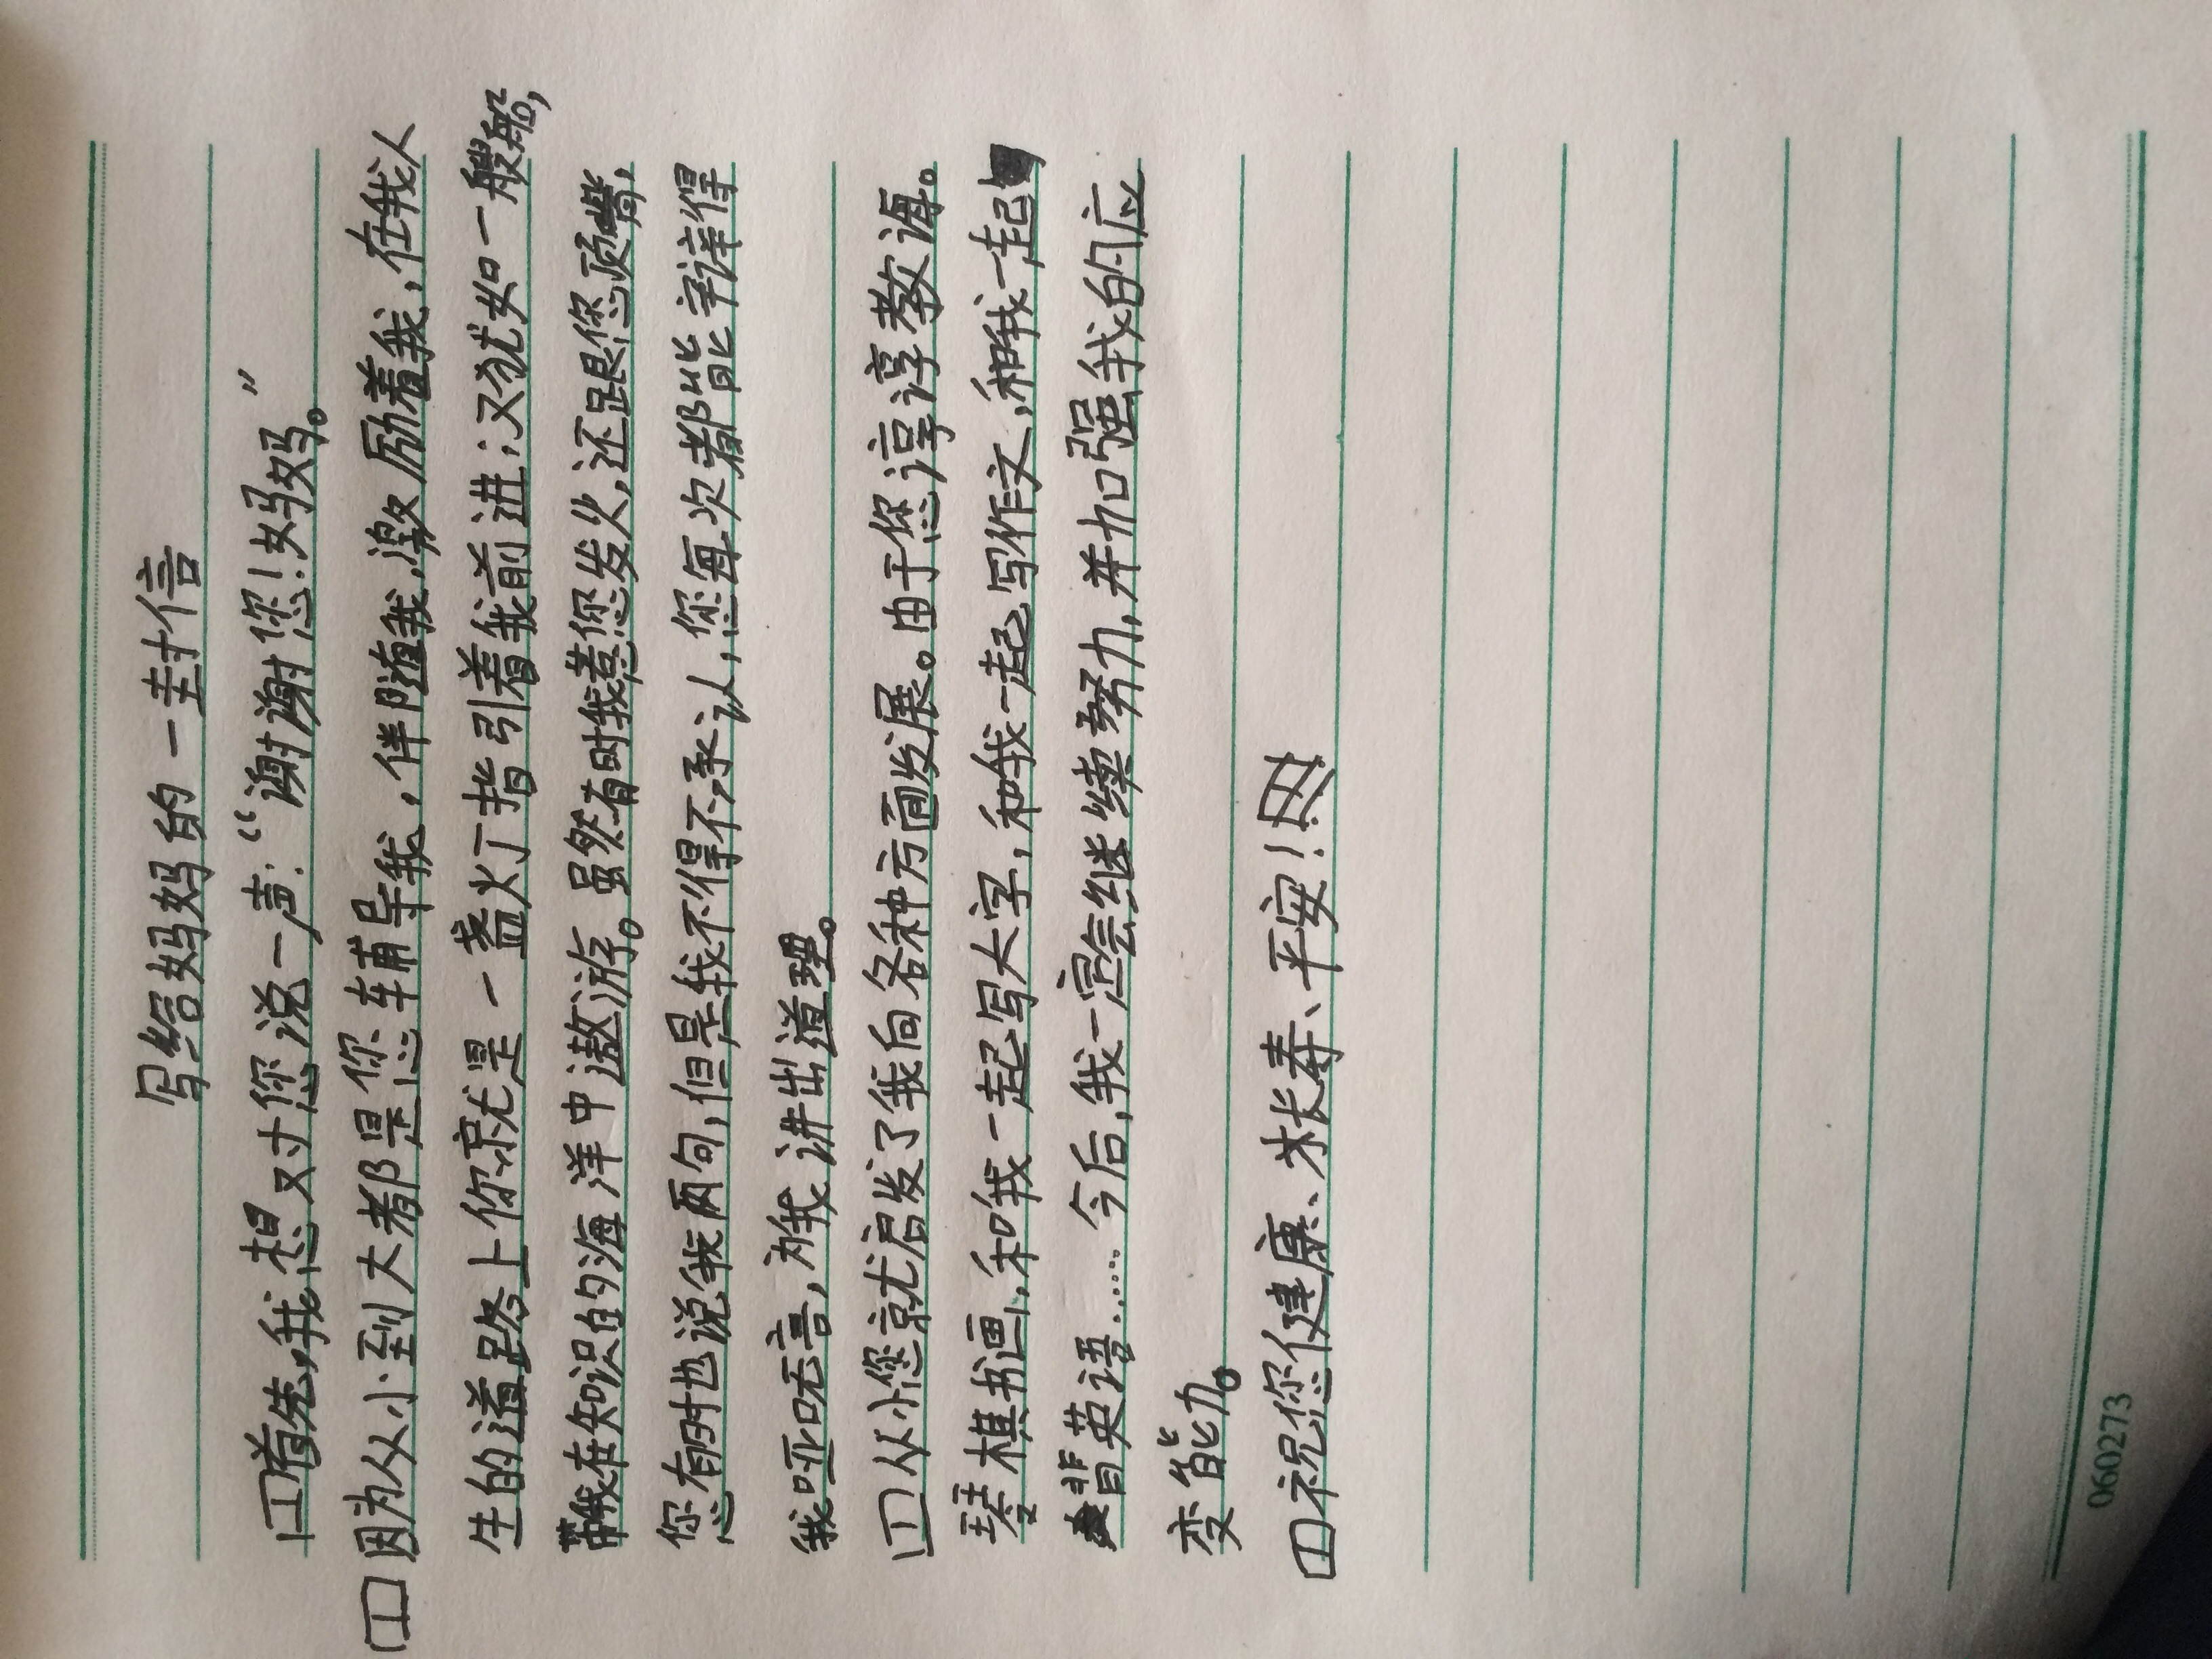 写给妈妈的一封信
首先,我想对您说一声:“谢谢您!妈妈。”
因为从小到大都是您辅导我,伴随我,激励着我,在我人
生的道路上你就是一盏灯指引着我前进;又犹如一艘船,
带我在知识的海洋中遨游。虽然有时我惹您发火,还跟您顶嘴,
您有时也说我两句,但是我不得不承认,您每次都能辩得
我哑口无言,和我讲出道理。
从小您就启发了我向各种方面发展。由于您谆谆教诲。
琴棋书画,和我一起写大字,和我一起写作文,和我一起
背英语……今后,我一定会继续努力,并加强我的应
变能力。
祝您健康、长寿、平安!
060273